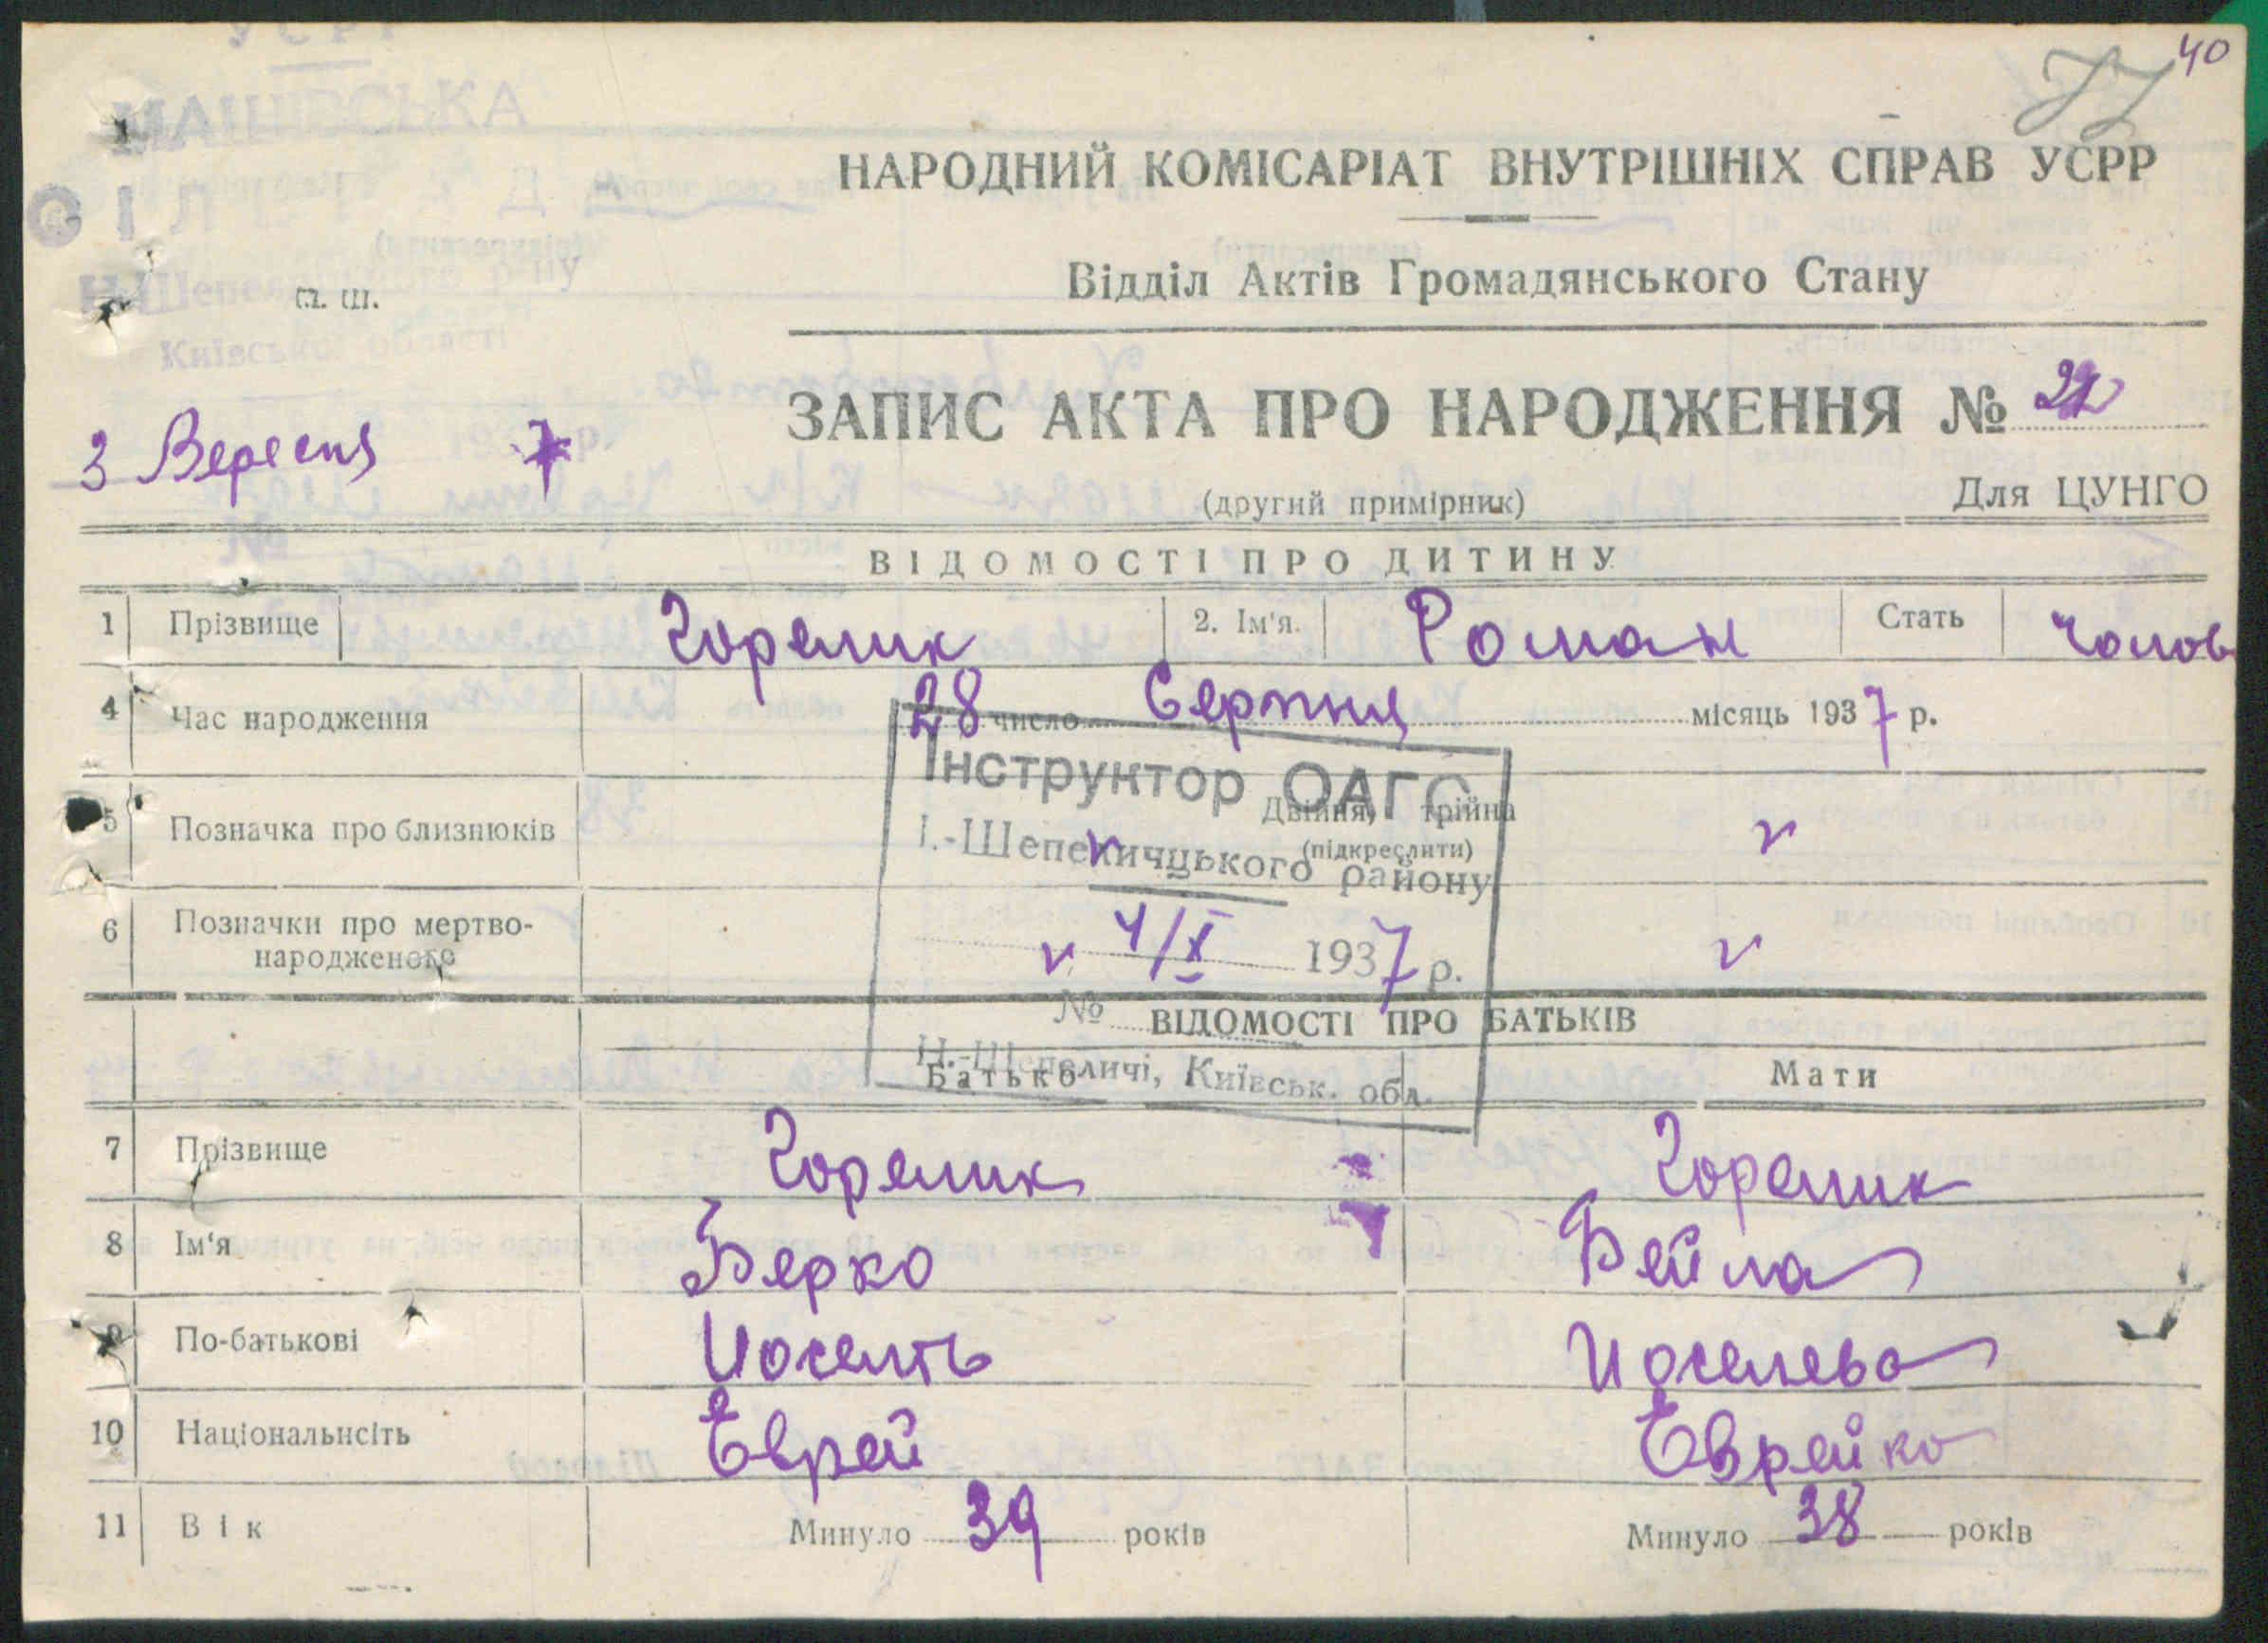 40
УСРР
МАШІВСЬКА
СІЛЬРАДА
Н-Шепелицького р-ну
Київської області
п. ш.
НАРОДНИЙ КОМІСАРІАТ ВНУТРІШНІХ СПРАВ УСРР
Відділ Актів Громадянського Стану
ЗАПИС АКТА ПРО НАРОДЖЕННЯ №
3 Вересня 1937 р.
(другий примірник)
Для ЦУНГО
№
ВІДОМОСТІ ПРО ДИТИНУ
1 Прізвище Горелик 2. Ім'я. Роман Стать Чолов
4 Час народження 28 число Серпня місяць 1937 р.
Інструктор ОАГС
5 Позначка про близнюків Двійня, трійна
(підкреслити)
району
6 Позначки про мертво-
народженого
4/X 1937 р.
№
ВІДОМОСТІ ПРО БАТЬКІВ
Н.-Шепеличі, Київськ. обл.
Батько Мати
7 Прізвище Горелик Горелик
8 Ім'я Берко Бейла
9 По-батькові Иоселть Иоселева
10 Національнсіть Еврей Еврейка
11 Вік Минуло 39 років Минуло 38 років